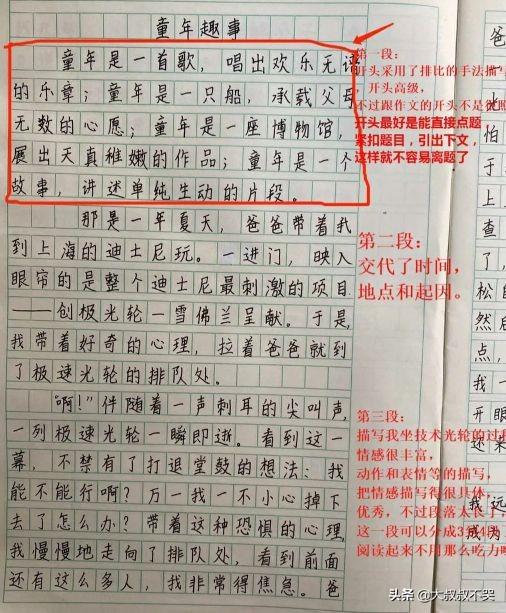 童年趣事
童年是一首歌，唱出欢乐无谱
的乐章；童年是一只船，承载父母
无数的心愿；童年是一座博物馆，
展出天真稚嫩的作品；童年是一个
故事，讲述单纯生动的片段。
那是一年夏天，爸爸带着我
到上海的迪士尼玩。一进门，映入
眼帘的是整个迪士尼最刺激的项目
——创极光轮—雪佛兰呈献。于是，
我带着好奇的心理，拉着爸爸就到
了极速光轮的排队处。
"啊！"伴随着一声刺耳的尖叫声，
一列极速光轮一瞬即逝。看到这一
幕，不禁有了打退堂鼓的想法：我
能不能行啊？万一我一不小心掉下
去了怎么办？带着这种恐惧的心理，
我慢慢地走向了排队处，看到前面
还有这么多人，我非常得焦急。爸
第一段：
开头采用了排比的手法描写
，开头高级，
不过跟作文的开头不是很照
开头最好是能直接点题
紧扣题目，引出下文，
这样就不容易离题了
第二段：
交代了时间，
地点和起因。
第三段：
描写我坐技术光轮的过程
情感很丰富，
动作和表情等的描写，
把情感描写得很具体，
优秀，不过段落太长了，
这一段可以分成3到4段
阅读起来不用那么吃力
爸
怕
于
上
查
了，
松的
然后
点，
我一
开眼
还来
我远
成为
头条 @大叔叔不哭